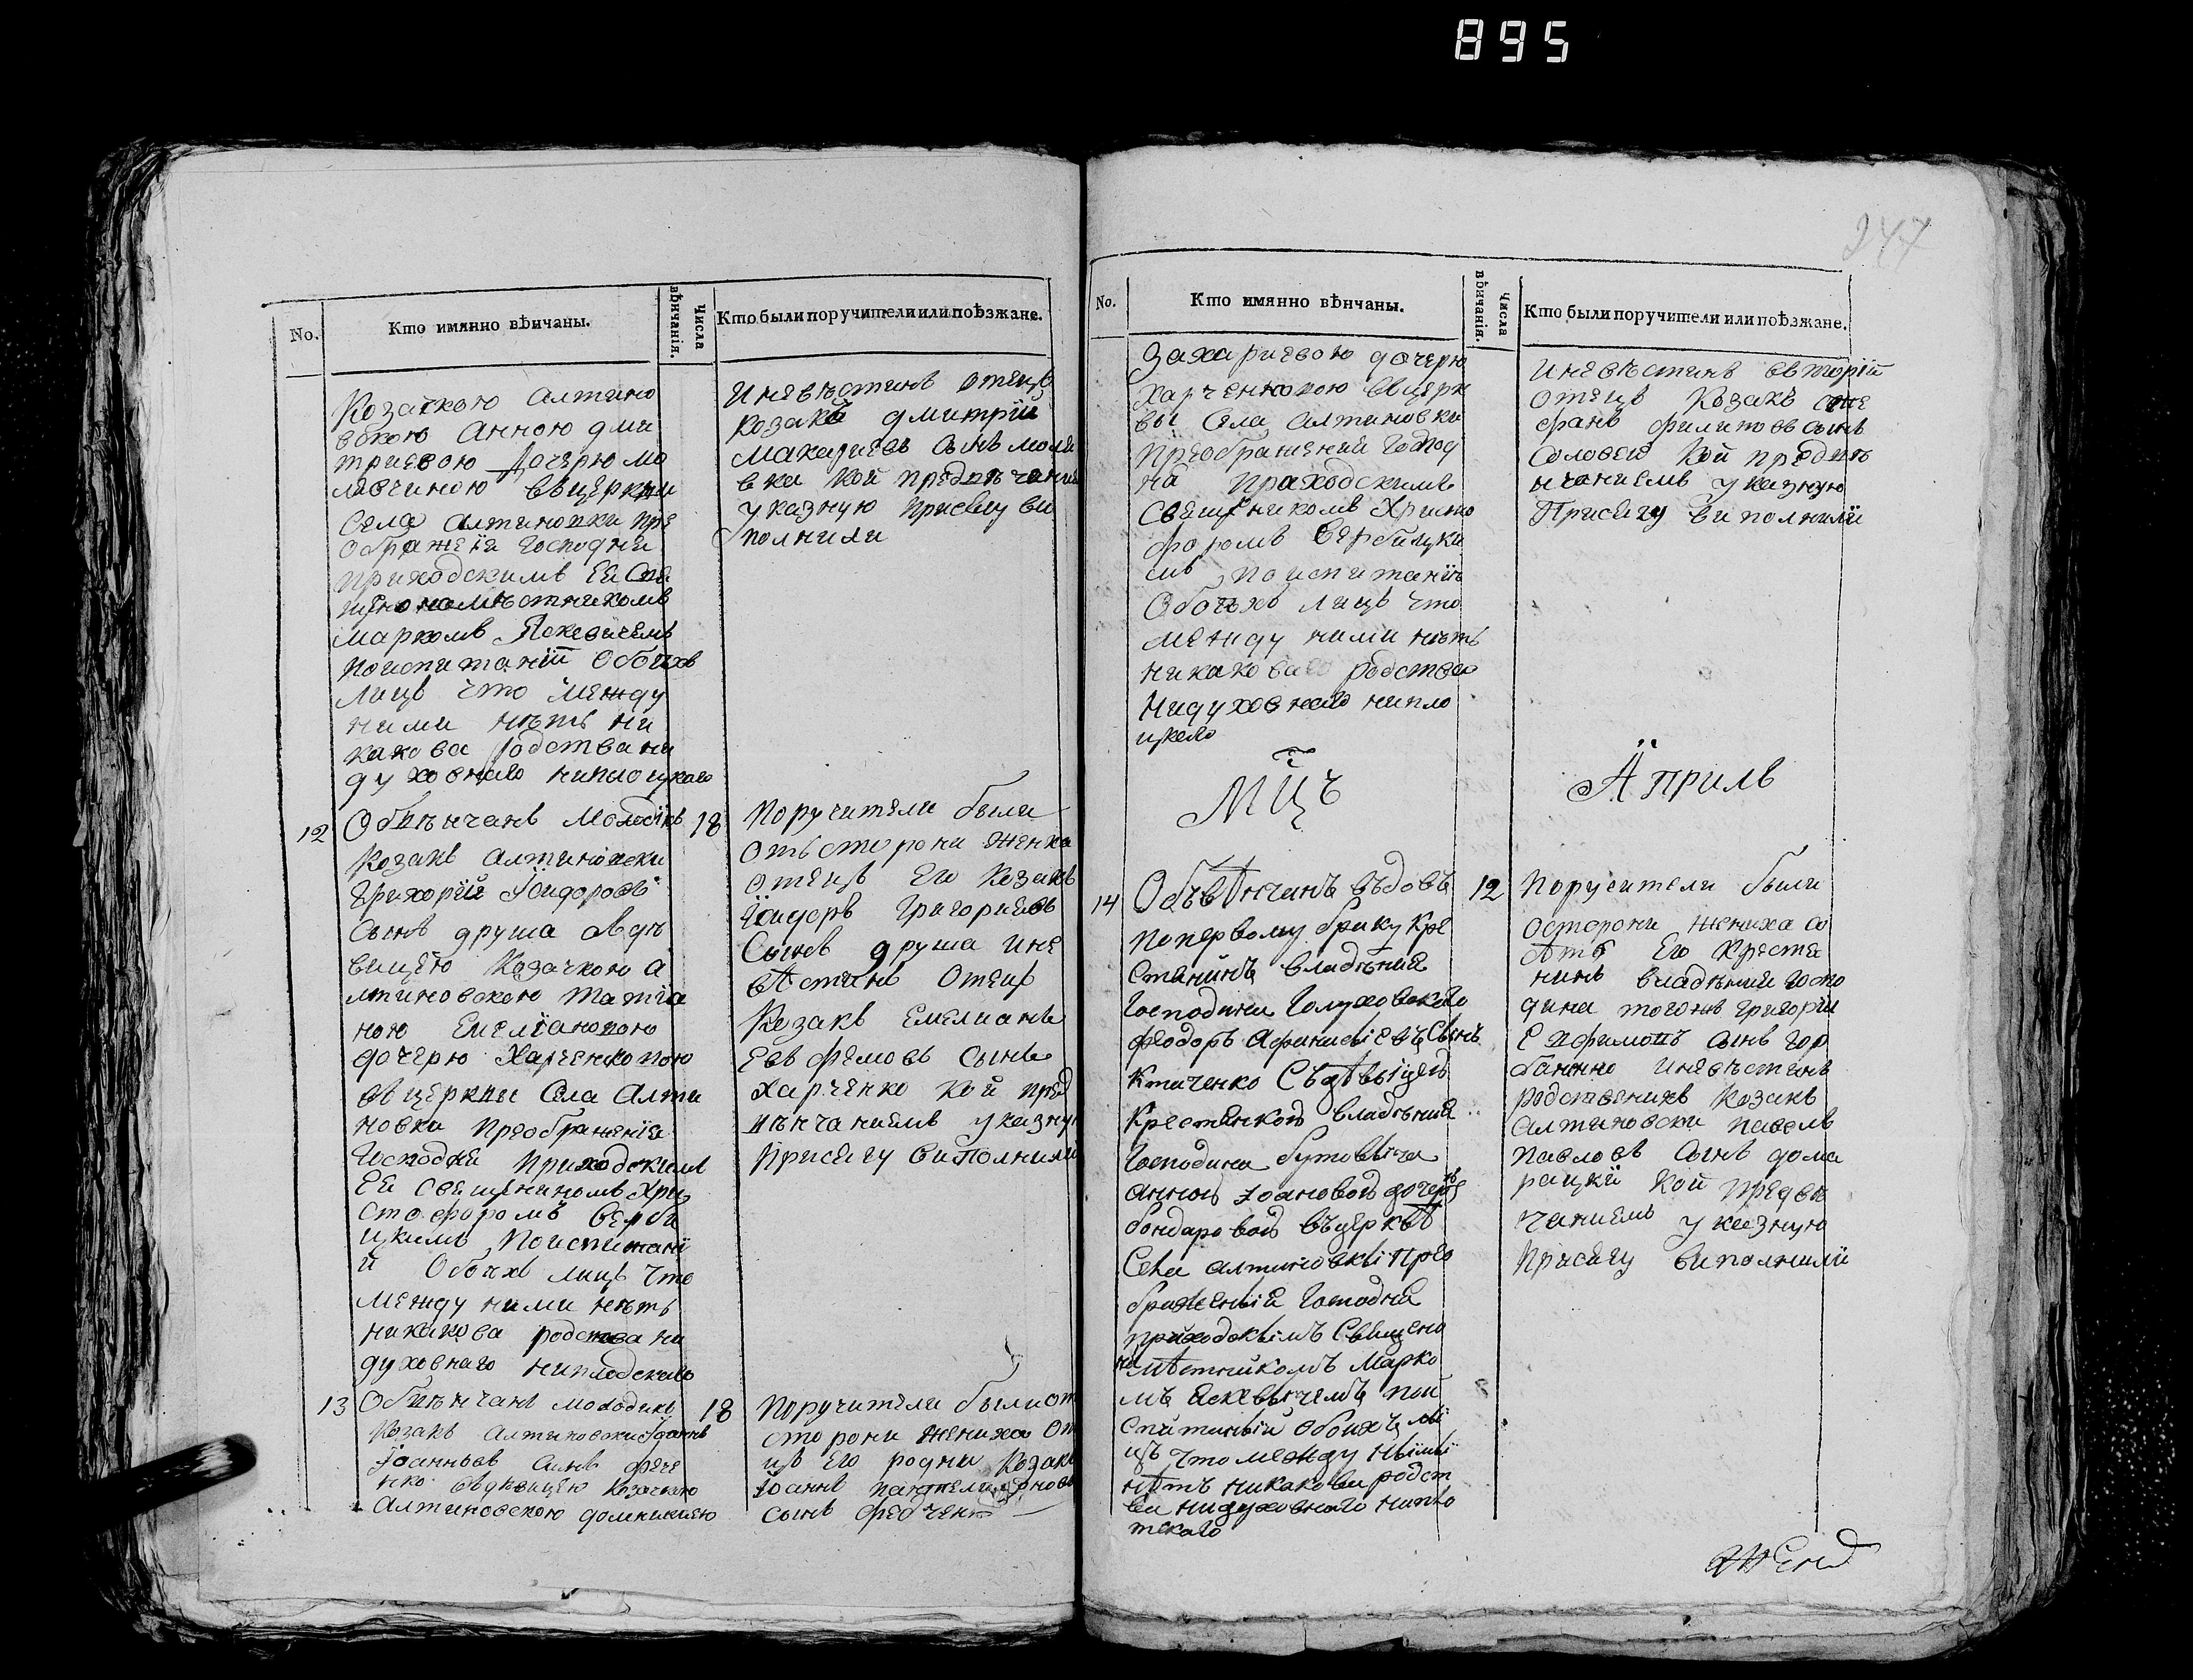 895
247
No.
Кто имянно вѣнчаны.
Числа вѣнчанія.
Кто были поручители или поѣзжане.
Козачкою Алтино
вскою Анною Дми
триевою Дочерю мо
вцеркви
Села Алтиновки Пре
ображенія Господня
приходскимъ Ея Свя
щенонамѣстникомъ
Маркомъ Яскевичемъ
поиспитанїи Обоихъ
лицъ что между
ними нѣтъ ни
какова родства ни
духовнаго ниплоцкаго
Иневѣстинъ Отецъ
козакъ Дмитрїй
Макариевъ Сынъ
кой предвѣнчание
указную присягу ви
полнили
12
Обвѣнчанъ Молодикъ
козакъ Алтиновски
Григорїй Їсидоровъ
Сынъ друша Здѣ
вицею Козачкою А
лтиновскою Татїа
ною Емелїановою
дочерю Харченковою
вцеркви Села Алти
новки Преображенїя
Господня Приходскимъ
Ея Священикомъ Хри
стофоромъ Верби
цкимъ Поиспитанї
и Обоихъ лицъ что
между ними нѣтъ
никакова родства ни
духовнаго ниплодскаго
18
Поручители были
отъстори жениха
отецъ Его Козакъ
Їсидоръ Григориевъ
Сынъ друша ине
вѣстинъ Отецъ
Козакъ Емелианъ
Евфемовъ Сынъ
Харченко кой пред
вѣнчаниемъ указную
присягу виполнили
13
Обвѣнчанъ молодикъ
Козакъ Алтиновски Їоаннъ
Їоанновъ Синъ Фече
нко здѣвицею козачкою
Алтиновскою домникиею
18
Поручители были от
сторони жениха От
цъ Его родни Козакъ
Їоаннъ Пантелимоновъ
сынъ
No.
Кто имянно вѣнчаны.
Числа вѣнчанія.
Кто были поручители или поѣзжане.
Захариевою дочерю
Харченковою вцерк
вы Села Алтиновки
Преображений Господ
ня Приходскимъ
Священикомъ Христо
форомъ Вербицки
мъ поиспитанїи
Обоихъ лицъ что
между ними нѣтъ
никакова родства
нидуховнаго нипло
цкаго
Иневѣстинъ
отецъ Козакъ Сте
фанъ Филиповъ сынъ
Соловей кой предвѣ
нчаниемъ указную
Присягу виполнилї
Мцъ
Априль
14
Объвѣнчанъ въдовъ
попервому браку кре
стянинъ владѣния
Господина Голуховскаго
Феодоръ Афанасіевъ Сынъ
Ктиченко Съдѣвыцею
крестянкою владѣния
Господина Бутовыча
Анною Іоановою дочерю
бондаровою въцерквѣ
Села Алтиновкы Прео
браженыя Господня
приходскымъ Священо
намѣстникомъ Марко
мъ Яскевычемъ пои
спытаныи обоихъ лы
цъ что между нымы
нѣтъ никакова родст
ва нидуховнаго нипло
тскаго
12
Поручители были
осторони жениха со
Его Крестя
нинъ владѣния Госпо
дина тогожъ Григорїй
Ефимовъ сынъ Гор
баинко иневѣстинъ
родственикъ Козакъ
Алтиновски Павелъ
Павловъ Сынъ дома
рацкїй кой предвѣ
чаниемъ указную
Присягу виполнилї